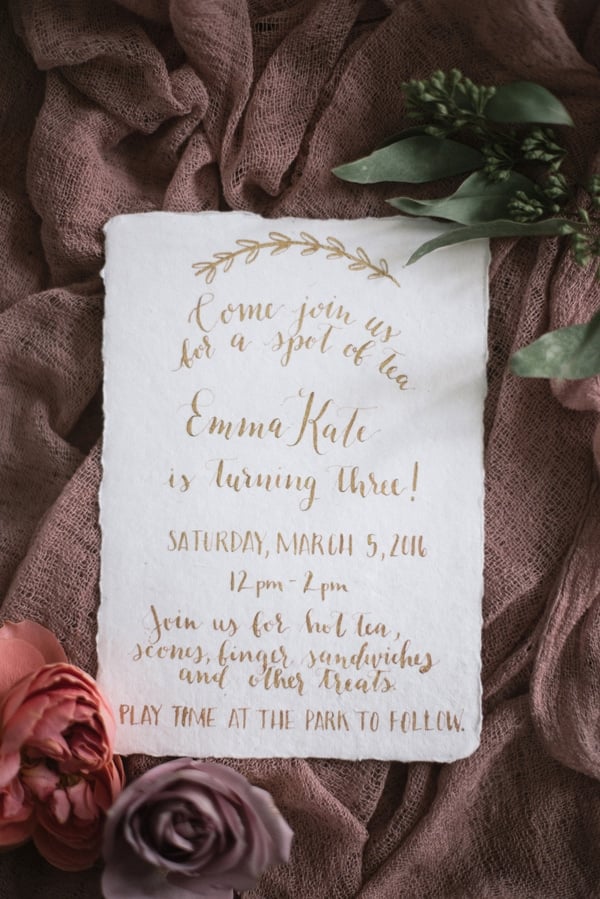 Come join us
for a spot of tea
Emma Kate
is turning three!
SATURDAY, MARCH 5, 2016
12pm - 2pm
Join us for hot tea,
scones, finger sandwiches
and other treats.
PLAY TIME AT THE PARK TO FOLLOW.